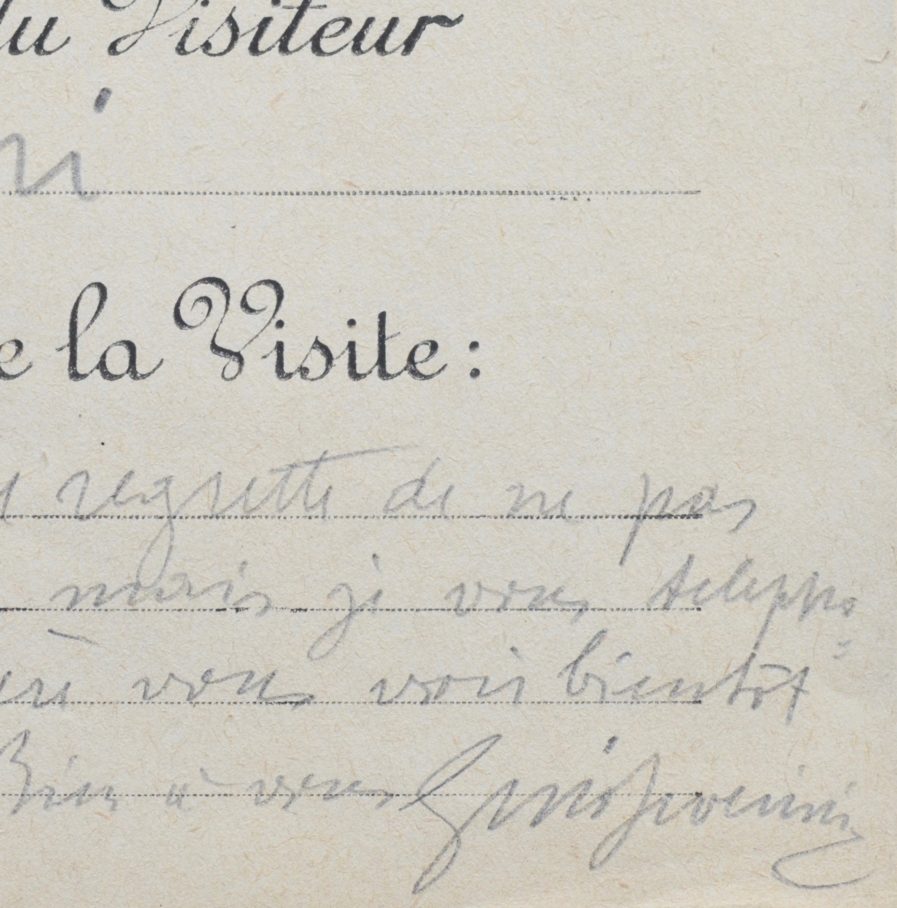 du Visiteur
ni
e la Visite:
e regrette de ne pas
mais je vous télépho-
vous voir bientôt
Bien à vous